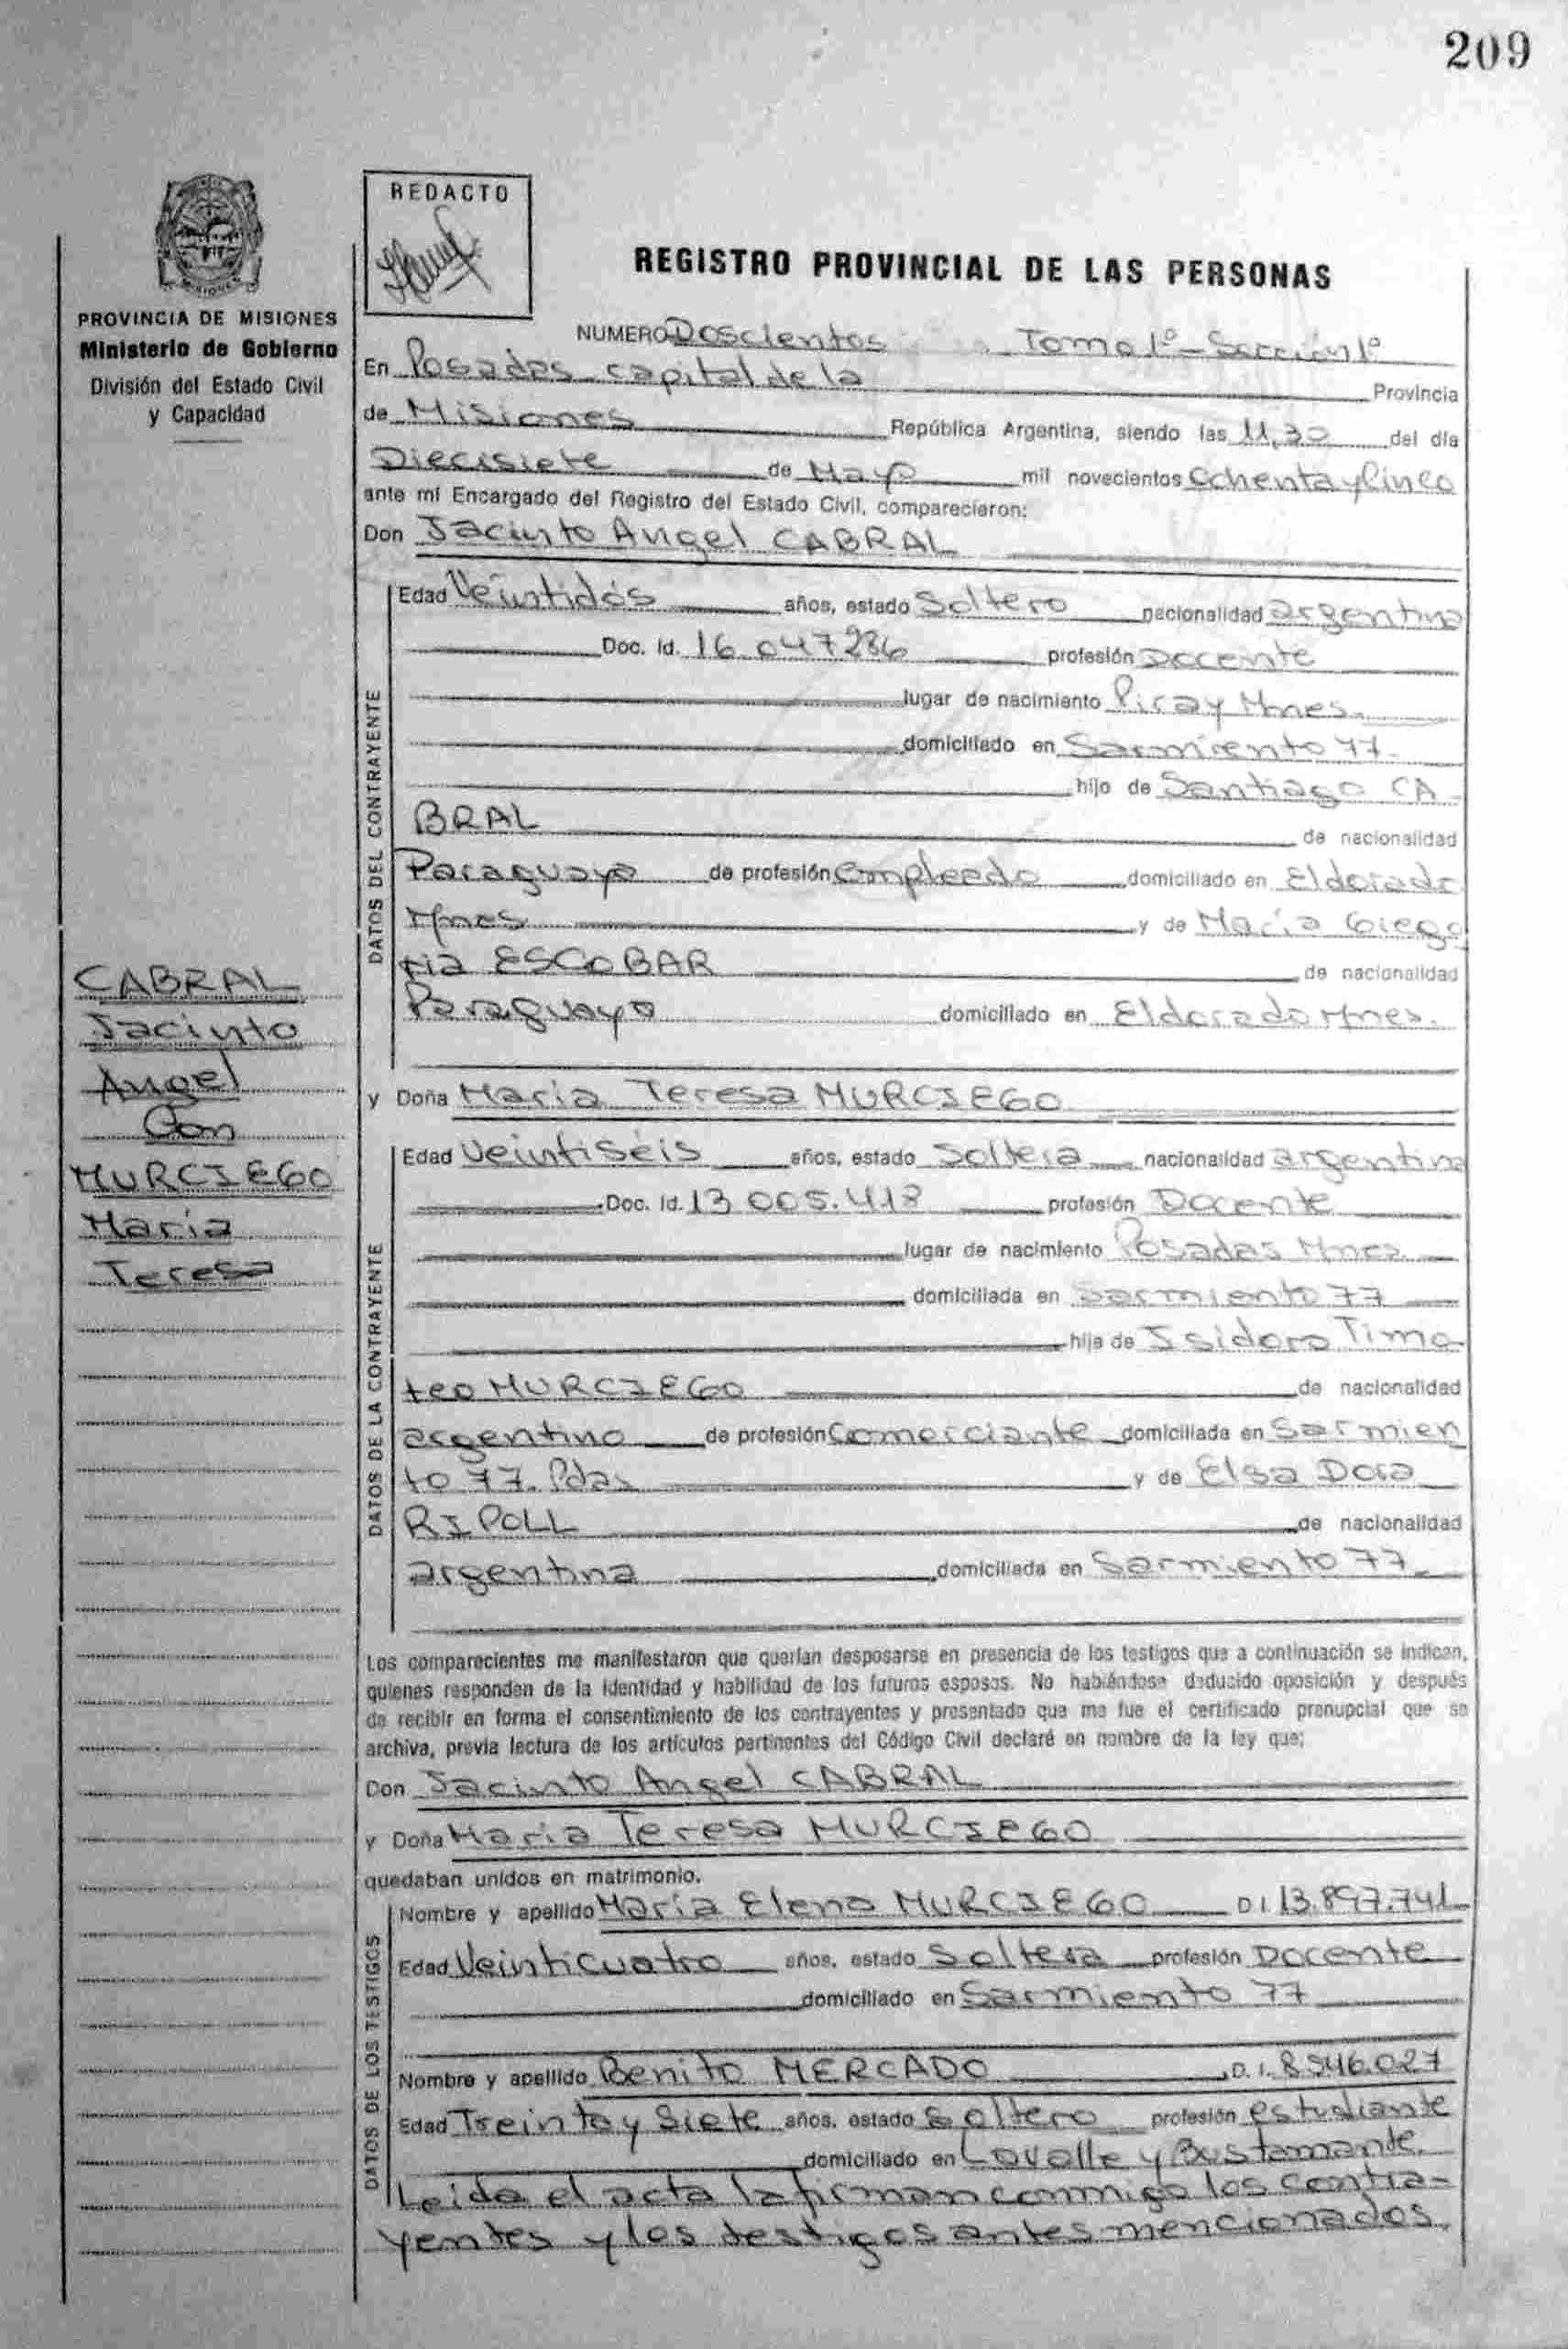 209
REDACTO
MISIONES
PROVINCIA DE MISIONES
Ministerio de Gobierno
División del Estado Civil
y Capacidad
REGISTRO PROVINCIAL DE LAS PERSONAS
NUMERO Doscientos Tomo 1º - Sección 1º
En Posadas capital de la Provincia
de Misiones República Argentina, siendo las 11,30 del día
Diecisiete de Mayo mil novecientos Ochenta y Cinco
ante mí Encargado del Registro del Estado Civil, comparecieron:
Don Jacinto Angel CABRAL
DATOS DEL CONTRAYENTE
Edad Veintidós años, estado Soltero nacionalidad argentina
Doc. Id. 16.047286 profesión Docente
lugar de nacimiento Piray Mnes.
domiciliado en Sarmiento 77.
hijo de Santiago CA
BRAL de nacionalidad
Paraguaya de profesión Empleado domiciliado en Eldorado
Mnes y de María Grego
ria ESCOBAR de nacionalidad
Paraguaya domiciliado en Eldorado Mnes.
CABRAL
Jacinto
Angel
Con
MURCIEGO
Maria
Teresa
y Doña Maria Teresa MURCIEGO
DATOS DE LA CONTRAYENTE
Edad Veintiséis años, estado Soltera nacionalidad argentina
Doc. Id. 13.005.418 profesión Docente
lugar de nacimiento Posadas Mnes
domiciliada en Sarmiento 77
hija de Isidoro Timo
teo MURCIEGO de nacionalidad
argentino de profesión Comerciante domiciliada en Sarmien
to 77. Pdas y de Elsa Dora
RIPOLL de nacionalidad
argentina domiciliada en Sarmiento 77
Los comparecientes me manifestaron que querían desposarse en presencia de los testigos que a continuación se indican,
quienes responden de la identidad y habilidad de los futuros esposos. No habiéndose deducido oposición y después
de recibir en forma el consentimiento de los contrayentes y presentado que me fue el certificado prenupcial que se
archiva, previa lectura de los artículos pertinentes del Código Civil declaré en nombre de la ley que:
Don Jacinto Angel CABRAL
y Doña Maria Teresa MURCIEGO
quedaban unidos en matrimonio.
DATOS DE LOS TESTIGOS
Nombre y apellido María Elena MURCIEGO D I 13.897.741
Edad Veinticuatro años, estado Soltera profesión Docente
domiciliado en Sarmiento 77
Nombre y apellido Benito MERCADO D. I. 8.546.027
Edad Treinta y Siete años, estado Soltero profesión estudiante
domiciliado en Lavalle y Bustamante.
Leida el acta la firman conmigo los contra-
yentes y los testigos antes mencionados.